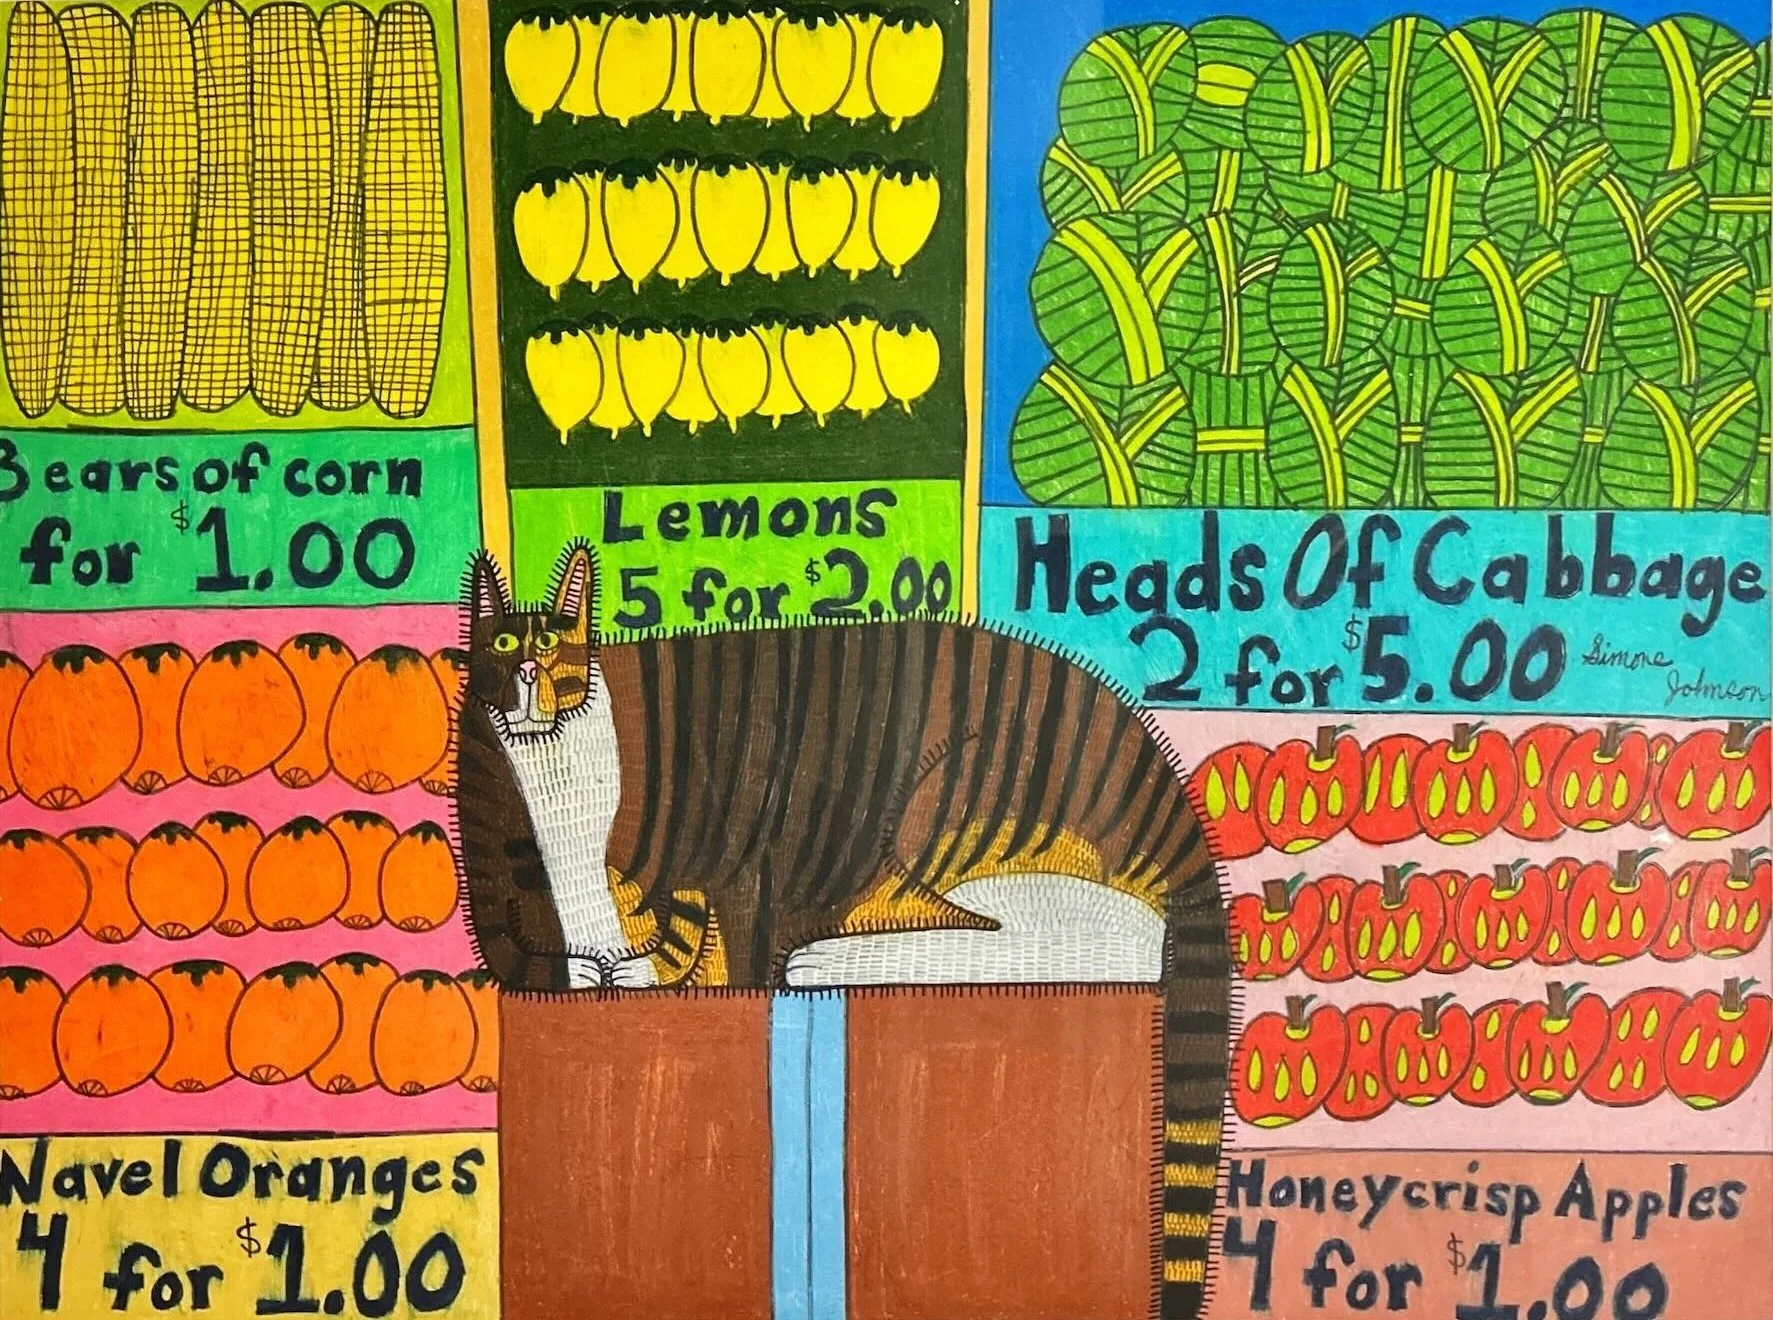 3 ears of corn
for $1.00
Lemons
5 for $2.00
Heads Of Cabbage
2 for $5.00
Simone
Johnson
Navel Oranges
4 for $1.00
Honeycrisp Apples
4 for $1.00